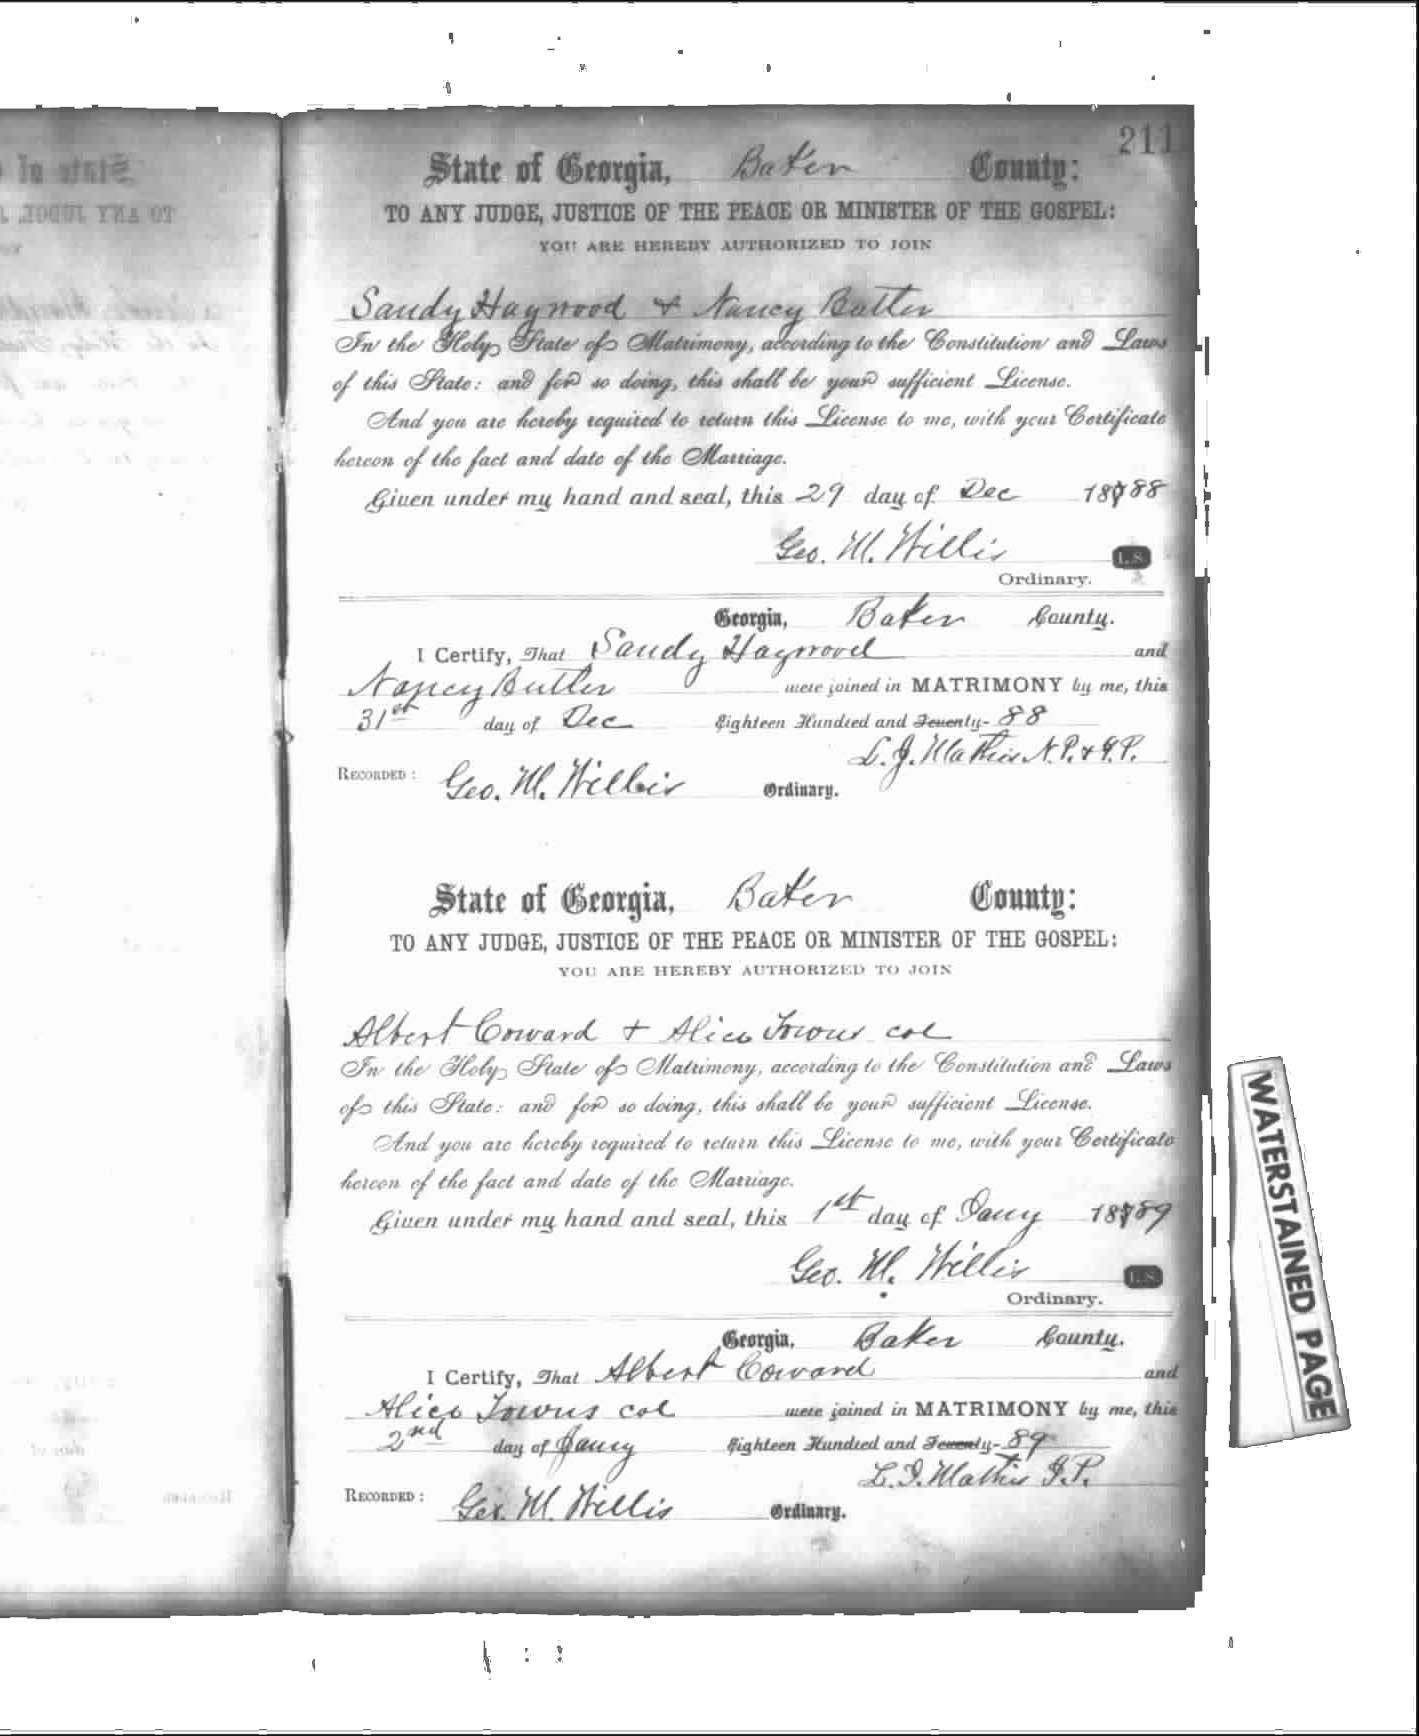 211
State of Georgia, Baker County:
TO ANY JUDGE, JUSTICE OF THE PEACE OR MINISTER OF THE GOSPEL:
YOU ARE HEREBY AUTHORIZED TO JOIN
Sandy Haywood & Nancy Butler
In the Holy State of Matrimony, according to the Constitution and Laws
of this State: and for so doing, this shall be your sufficient License.
And you are hereby required to return this License to me, with your Certificate
hereon of the fact and date of the Marriage.
Given under my hand and seal, this 29 day of Dec 1888
Geo. W. Willis L. S.
Ordinary.
Georgia, Baker County.
I Certify, That Sandy Haywood and
Nancy Butler were joined in MATRIMONY by me, this
31st day of Dec Eighteen Hundred and Seventy-88
L. J. Mathis N.P. & J.P.
RECORDED: Geo. W. Willis Ordinary.
State of Georgia, Baker County:
TO ANY JUDGE, JUSTICE OF THE PEACE OR MINISTER OF THE GOSPEL:
YOU ARE HEREBY AUTHORIZED TO JOIN
Albert Coward + Alice Towns col
In the Holy State of Matrimony, according to the Constitution and Laws
of this State: and for so doing, this shall be your sufficient License.
And you are hereby required to return this License to me, with your Certificate
hereon of the fact and date of the Marriage.
Given under my hand and seal, this 1st day of Jany 1889
Geo. W. Willis L. S.
Ordinary.
Georgia, Baker County.
I Certify, That Albert Coward and
Alice Towns col were joined in MATRIMONY by me, this
2nd day of Jany Eighteen Hundred and Seventy-89
L. J. Mathis J.P.
RECORDED: Geo. W. Willis Ordinary.
WATERSTAINED PAGE